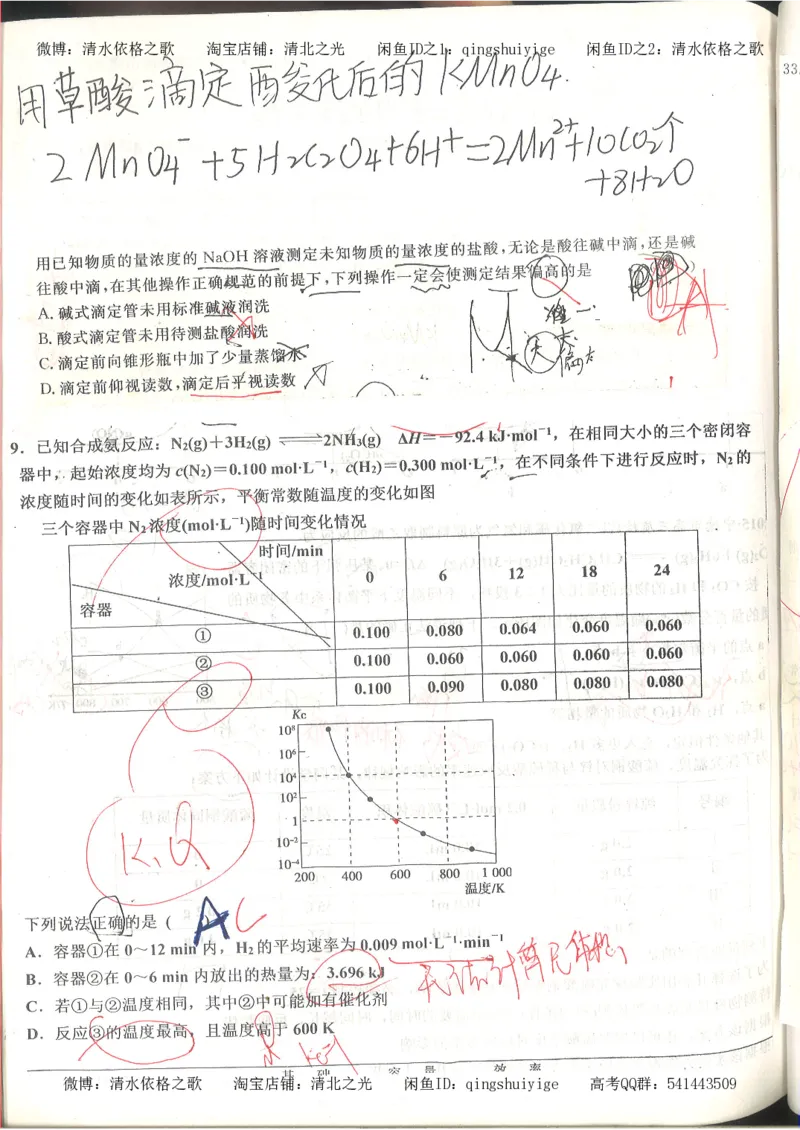 微博：清水依格之歌 淘宝店铺：清北之光 闲鱼ID之1：qingshuiyige 闲鱼ID之2：清水依格之歌
33.
用草酸滴定酸化后的KMnO4.
2MnO4⁻+5H2C2O4+6H⁺=2Mn²⁺+10CO2↑
+8H2O
用已知物质的量浓度的 NaOH 溶液测定未知物质的量浓度的盐酸,无论是酸往碱中滴,还是碱
往酸中滴,在其他操作正确规范的前提下,下列操作一定会使测定结果偏高的是
A. 碱式滴定管未用标准碱液润洗
B. 酸式滴定管未用待测盐酸润洗
C. 滴定前向锥形瓶中加了少量蒸馏水
D. 滴定前仰视读数,滴定后平视读数
A
9. 已知合成氨反应：N₂(g)+3H₂(g) ⇌ 2NH₃(g) ΔH=−92.4 kJ·mol⁻¹，在相同大小的三个密闭容
器中，起始浓度均为 c(N₂)=0.100 mol·L⁻¹，c(H₂)=0.300 mol·L⁻¹，在不同条件下进行反应时，N₂的
浓度随时间的变化如表所示，平衡常数随温度的变化如图
三个容器中 N₂浓度(mol·L⁻¹)随时间变化情况
时间/min
浓度/mol·L⁻¹ 0 6 12 18 24
容器
① 0.100 0.080 0.064 0.060 0.060
② 0.100 0.060 0.060 0.060 0.060
③ 0.100 0.090 0.080 0.080 0.080
Kc
10⁸
10⁶
10⁴
10²
1
10⁻²
10⁻⁴
200 400 600 800 1 000
温度/K
K、Q
下列说法正确的是（ ）
A C
A. 容器①在 0～12 min 内，H₂的平均速率为 0.009 mol·L⁻¹·min⁻¹
B. 容器②在 0～6 min 内放出的热量为：3.696 kJ
C. 若①与②温度相同，其中②中可能加有催化剂
D. 反应③的温度最高，且温度高于 600 K
基 础 容 量 效 率
微博：清水依格之歌 淘宝店铺：清北之光 闲鱼ID：qingshuiyige 高考QQ群：541443509